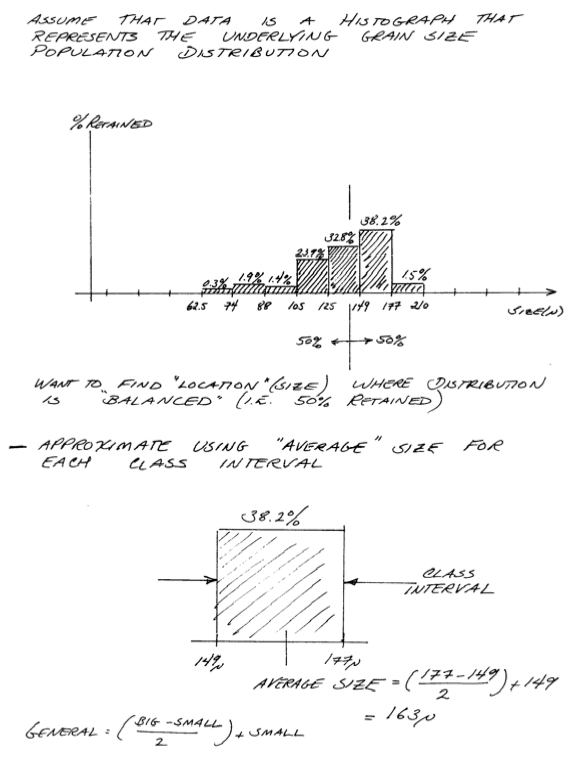 ASSUME THAT DATA IS A HISTOGRAPH THAT
REPRESENTS THE UNDERLYING GRAIN SIZE
POPULATION DISTRIBUTION
% RETAINED
38.2%
32.8%
23.9%
0.3% 1.9% 1.4% 1.5%
62.5 74 88 105 125 149 177 210
SIZE(μ)
50% ←→ 50%
WANT TO FIND "LOCATION" (SIZE) WHERE DISTRIBUTION
IS "BALANCED" (I.E. 50% RETAINED)
- APPROXIMATE USING "AVERAGE" SIZE FOR
EACH CLASS INTERVAL
38.2%
CLASS
INTERVAL
149μ 177μ
AVERAGE SIZE = (177-149 / 2) + 149
= 163μ
GENERAL: (BIG - SMALL / 2) + SMALL